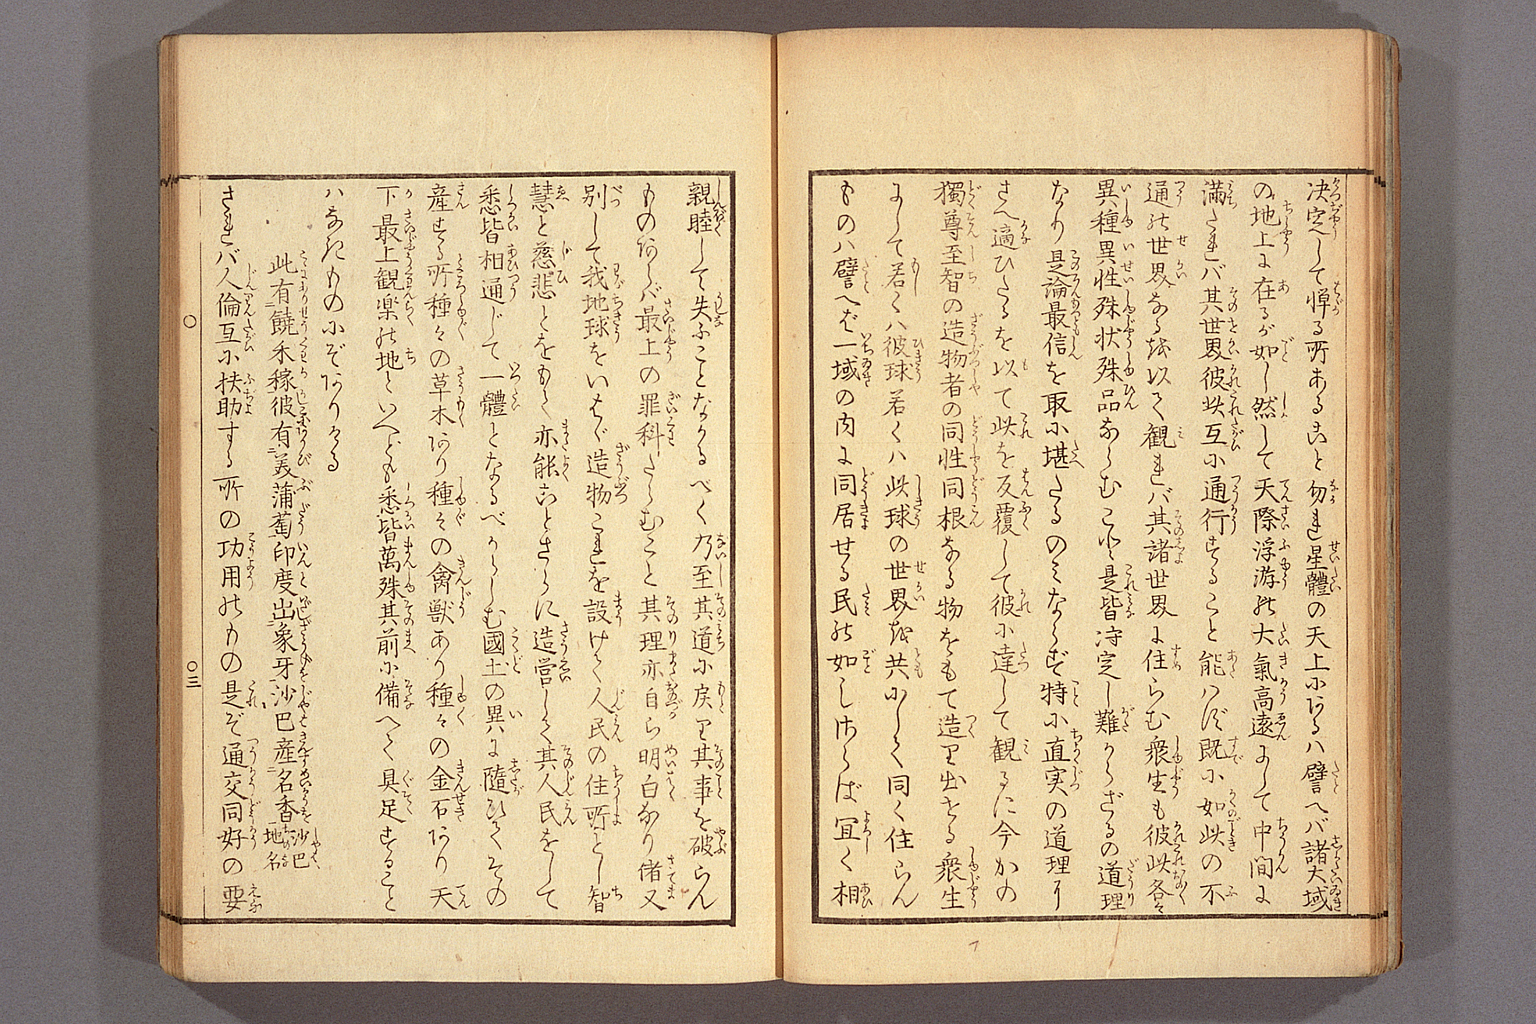 決定して憚る所あること勿れ星體の天上にあるハ譬へバ諸大域
の地上に在るが如し然して天際浮游の大氣高遠にして中間に
満たれバ其世界彼此互に通行すること能ハず既に如此の不
通の世界なるを以て観れバ其諸世界に住らむ衆生も彼此各々
異種異性殊状殊品ならむこと是皆決定し難からざるの道理
なり是論最信を取に堪たるのミならず特に直実の道理あり
さへ適ひたるを以て此を反覆して彼に達して観るに今かの
獨尊至智の造物者の同性同根なる物をもて造り出せる衆生
にして若くハ彼球若くハ此球の世界を共にして同く住らん
ものハ譬へば一域の内に同居せる民の如しされば宜く相
親睦して失ふことなかるべく乃至其道に戻り其事を破らん
ものあらバ最上の罪科たらむこと其理亦自ら明白なり偖又
別して我地球をいはゞ造物これを設けて人民の住所とし智
慧と慈悲とをもて亦能ことさらに造営して其人民をして
悉皆相通じて一體となるべからしむ國土の異に隨ひてその
産する所種々の草木あり種々の禽獣あり種々の金石あり天
下最上観楽の地といへども悉皆萬殊其前に備へて具足すること
ハなきものにぞありける
此有饒禾稼彼有美蒲萄印度出象牙沙巴産名香 沙巴地名
されバ人倫互に扶助する所の功用のもの是ぞ通交同好の要
〇
〇三